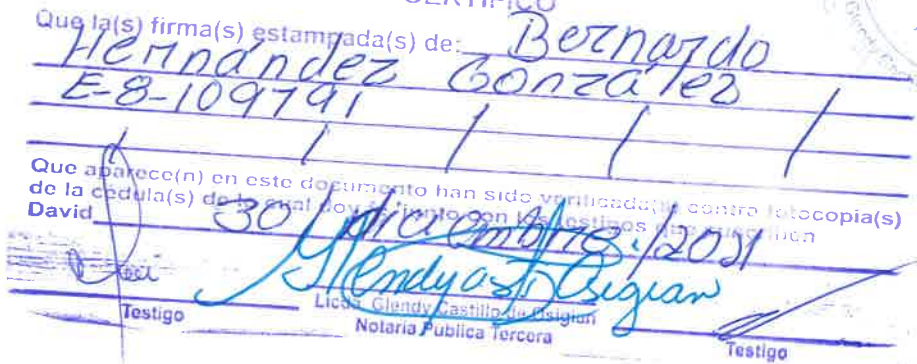 CERTIFICO
Que la(s) firma(s) estampada(s) de: Bernardo
Hernández González
E-8-109791 / / / /
/ / / / /
Que aparece(n) en este documento han sido verificada(s) contra fotocopia(s)
de la cédula(s) de lo cual doy fe, junto con los testigos que suscriben
David 30/diciembre/2021
Glendy C. Osigian
Licda. Glendy Castillo de Osigian
Testigo Notaria Pública Tercera Testigo